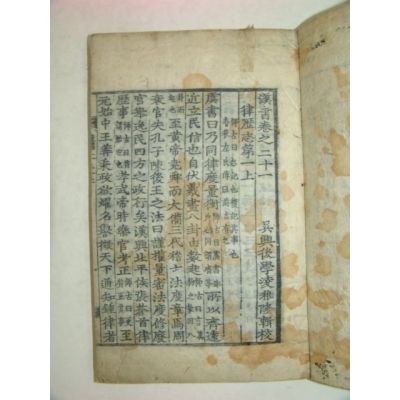 漢書卷之二十一
吳興後學凌稚隆輯校
律歷志第一上 師古曰志記也積記其事也
虞書曰乃同律度量衡 所以齊遠
近立民信也自伏羲畫八卦由數起 師古曰言萬
至黃帝堯舜而大備三代稽古法度章焉周
衰官失孔子陳後王之法曰謹權量審法度修廢
官舉逸民四方之政行矣漢興北平侯張蒼首律
歷事 孝武帝時樂官考正
元始中王莽秉政欲燿名譽徵天下通知鐘律者